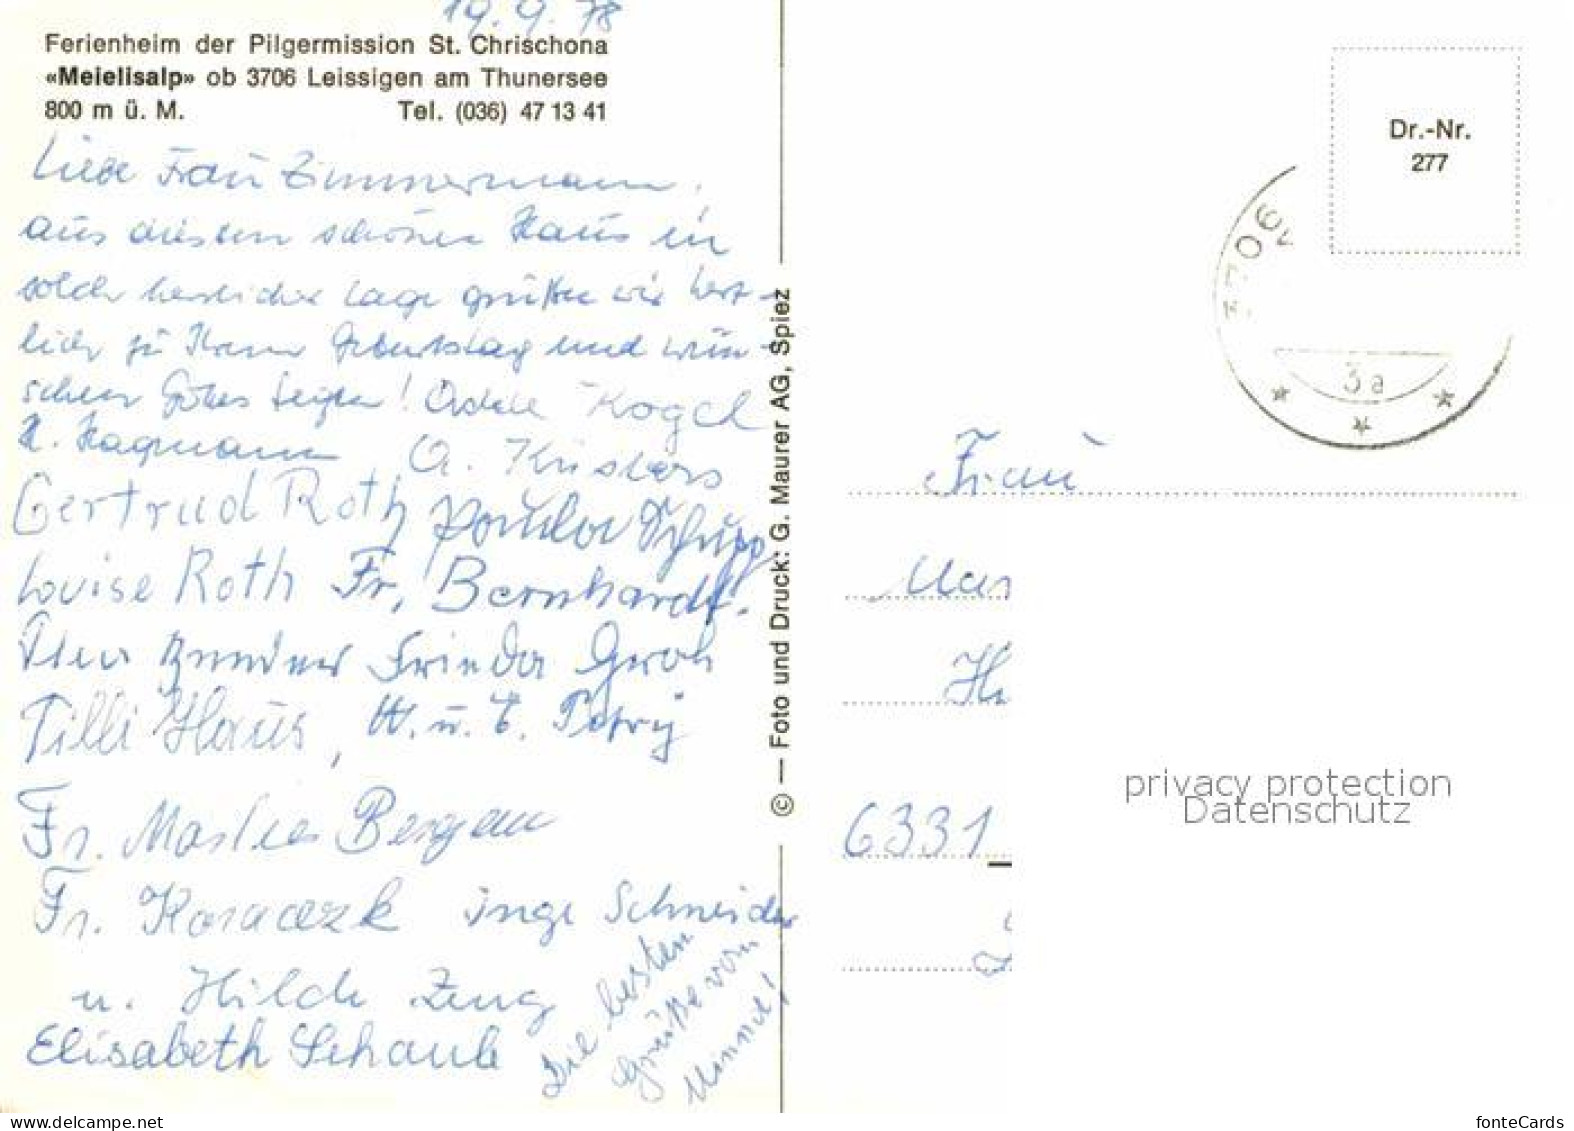 19.9.78
Ferienheim der Pilgermission St. Chrischona
«Meielisalp» ob 3706 Leissigen am Thunersee
800 m ü. M. Tel. (036) 47 13 41
Liebe Frau Zimmermann,
aus diesem schönen Haus in
solch herrlicher Lage grüßen wir herz-
lich zu Ihrem Geburtstag und wün-
schen Gottes Segen! Adele Kogel
H. Hagmann
Gertrud Roth Paula Schupp
Louise Roth Fr. Bernhardt.
Frieda Groh
Tilli Haus, W. u. E. Petry
Fr. Bergen
Fr. Koraczk Inge Schneider
u. Hilde Zeug
Elisabeth Schaub
Die besten
Grüße von
Minna!
© — Foto und Druck: G. Maurer AG, Spiez
Dr.-Nr.
277
3706
3a
Frau
6331
privacy protection
Datenschutz
www.delcampe.net
fonteCards